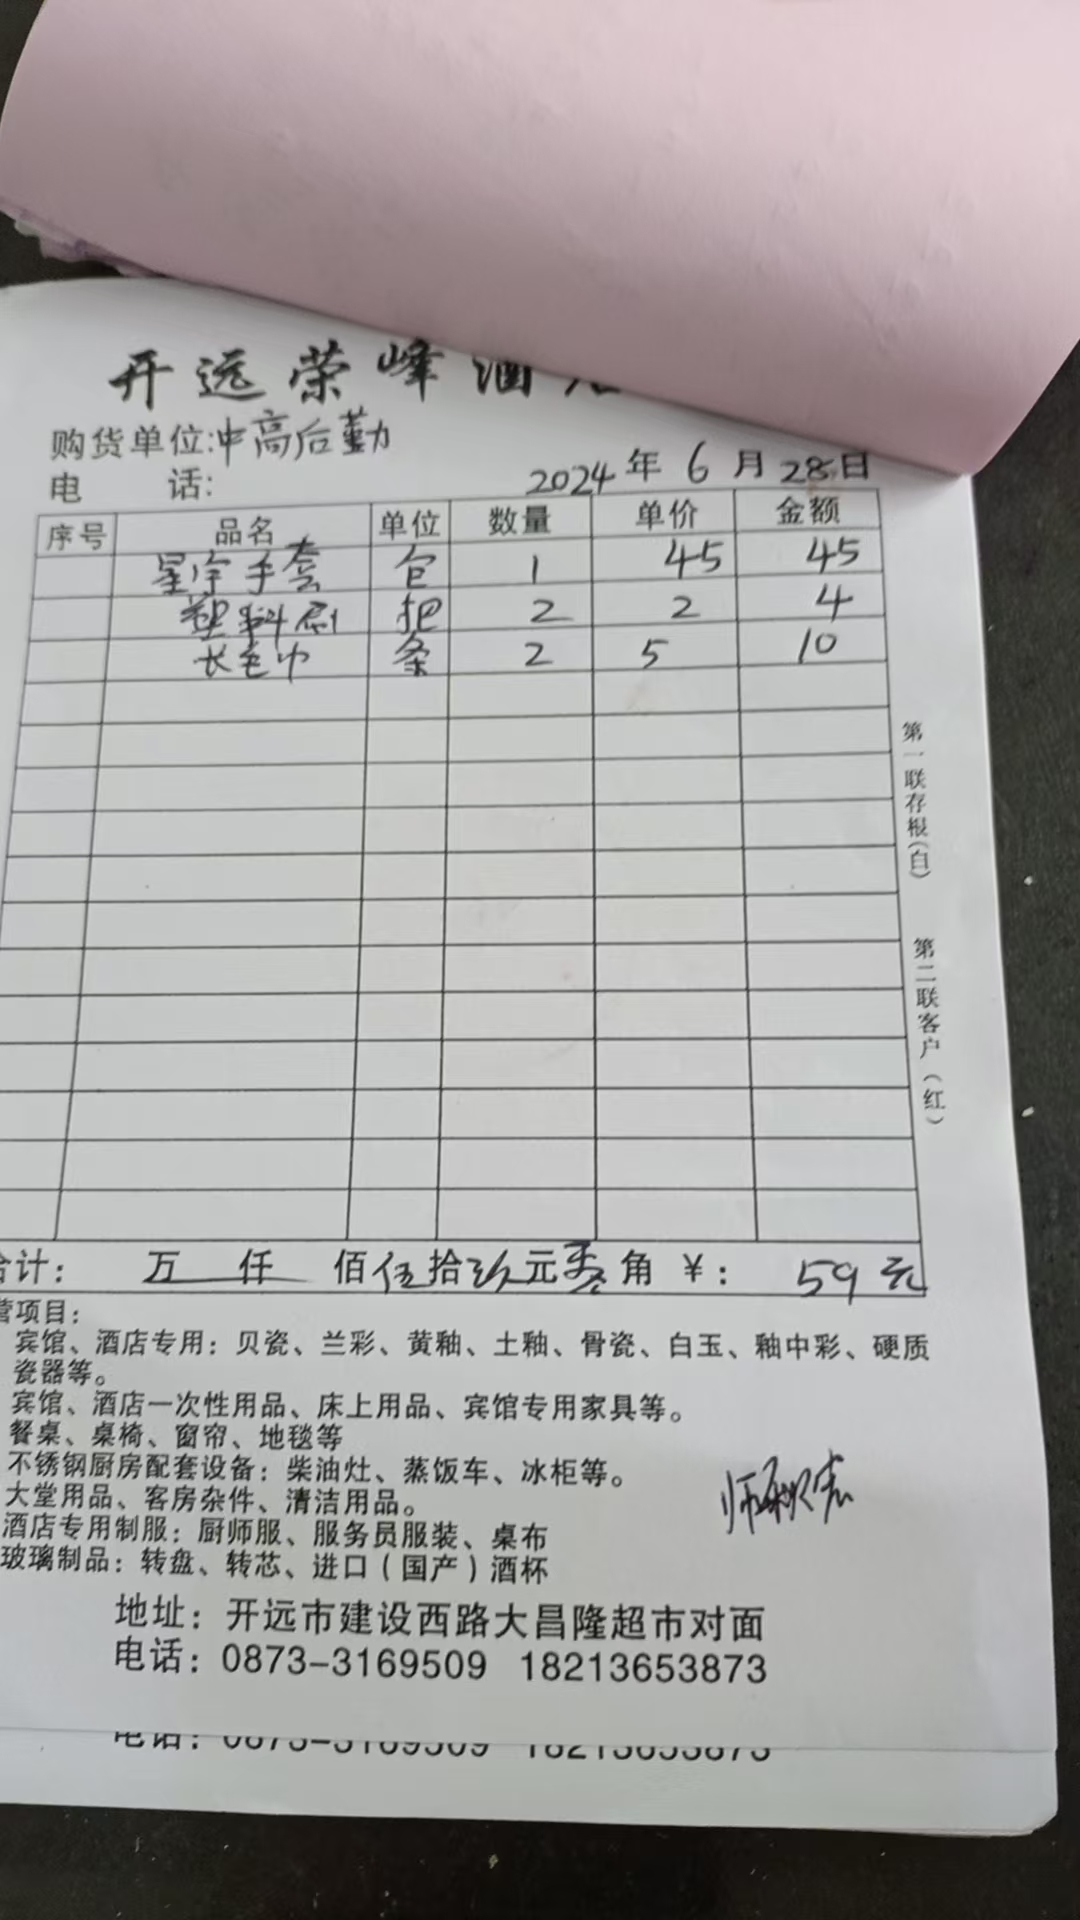 开远荣峰酒店
购货单位:中高后勤
电 话: 2024年6月28日
序号 品名 单位 数量 单价 金额
星宇手套 包 1 45 45
塑料刷 把 2 2 4
长毛巾 条 2 5 10
第一联存根(白) 第二联客户(红)
合计: 万 仟 佰伍拾玖元零角 ¥: 59元
营项目:
宾馆、酒店专用:贝瓷、兰彩、黄釉、土釉、骨瓷、白玉、釉中彩、硬质
瓷器等。
宾馆、酒店一次性用品、床上用品、宾馆专用家具等。
餐桌、桌椅、窗帘、地毯等
不锈钢厨房配套设备:柴油灶、蒸饭车、冰柜等。
大堂用品、客房杂件、清洁用品。
酒店专用制服:厨师服、服务员服装、桌布
玻璃制品:转盘、转芯、进口(国产)酒杯
地址:开远市建设西路大昌隆超市对面
电话:0873-3169509 18213653873
电话:0873-3169509 18213653873